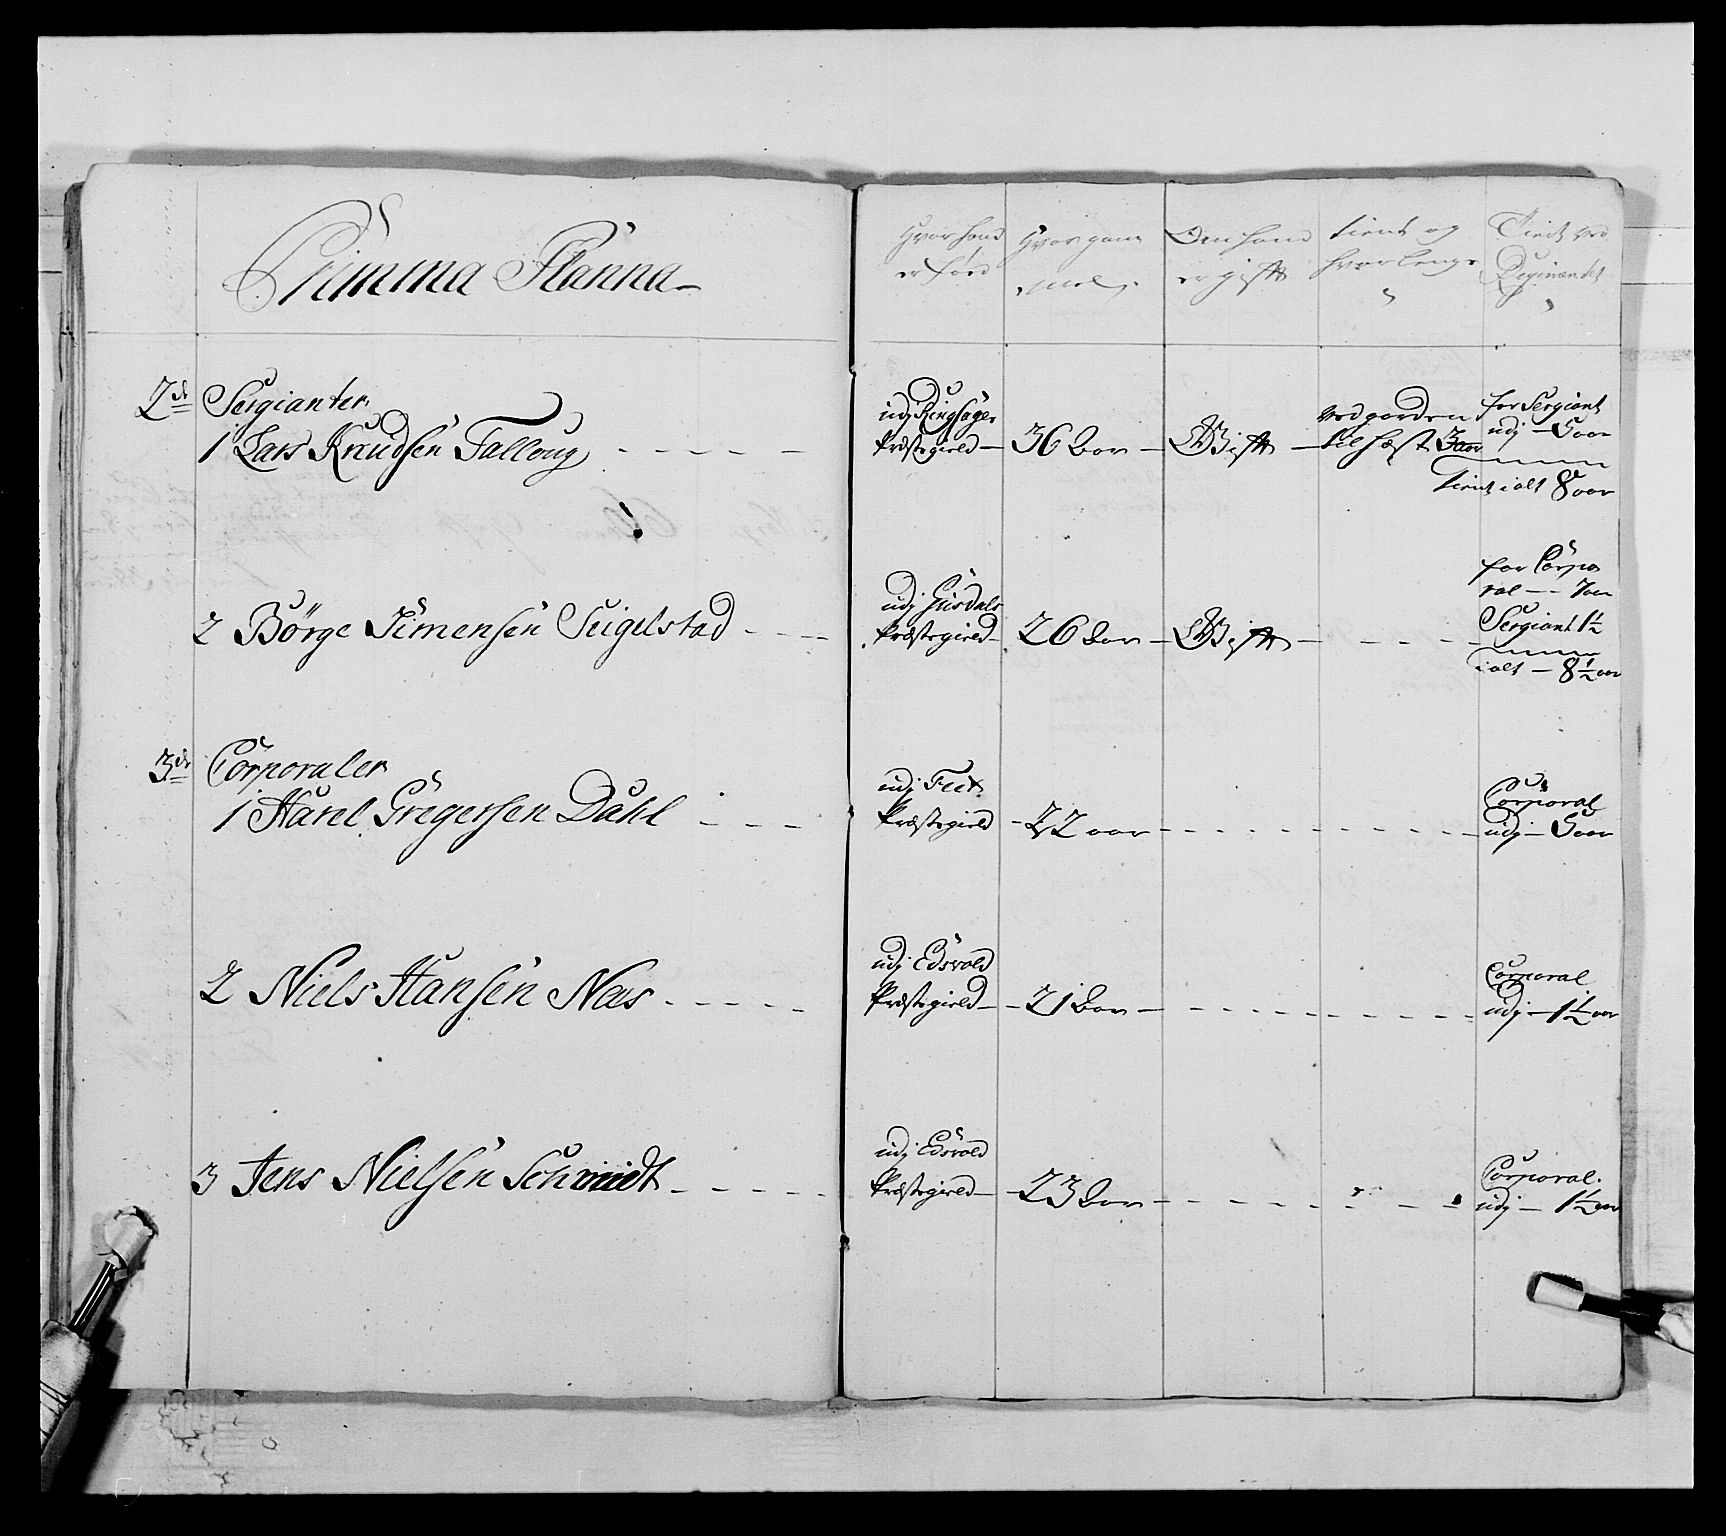 Primma Planna
Hvor hand er född
Hvor gam̄el
Om hand er gift
tient og hvor lenge
Tient ved Regimentet
2de Sergianter
1 Lars Knudsen Falloug
udj Ringsager Præstegield
36 aar
Gift
ved garden til hæst 3 aar
for Sergiant udj 5 aar
tient i alt 8 aar
2 Börge Simensen Seigelstad
udj Præstegield
26 aar
Gift
for Corporal 7 aar
Sergiant 1½
i alt 8½ aar
3de Corporaler
1 Harel Gregersen Dahl
udj Feet Præstegield
22 aar
Corporal udj 5 aar
2 Niels Hansen Næs
udj Edsvold Præstegield
21 aar
Corporal udj 1½ aar
3 Jens Nielsen Schmidt
udj Edsvold Præstegield
23 aar
Corporal udj 1½ aar